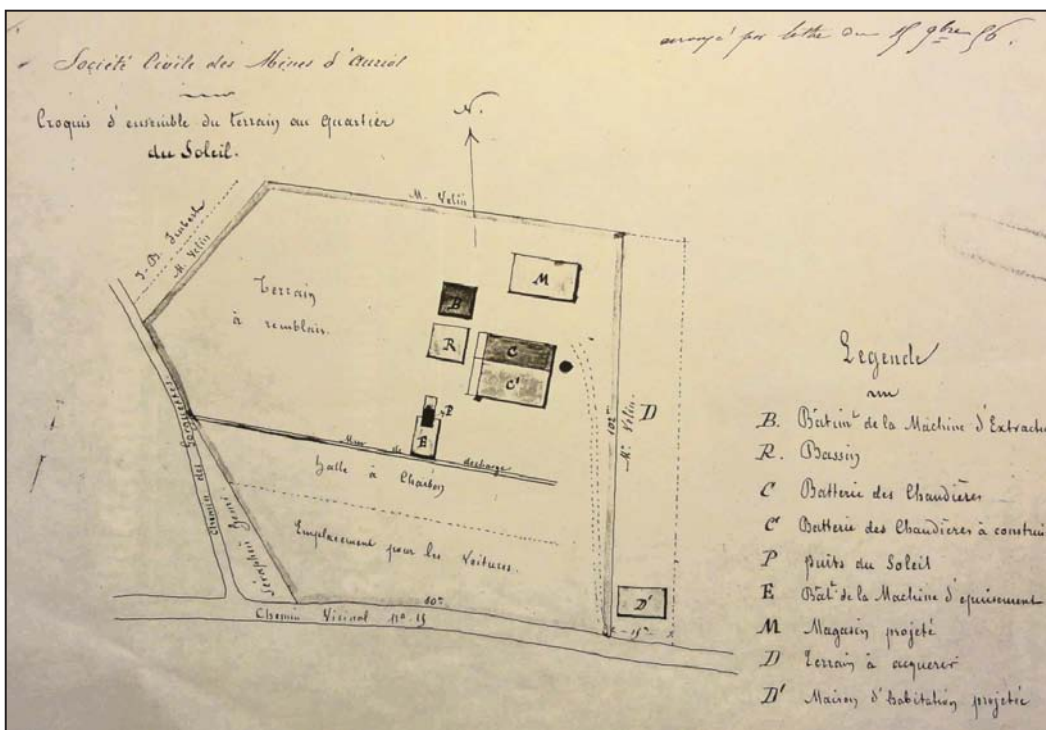 envoyé par lettre du 15 9bre 56.
Société Civile des Mines d'Auriol
Croquis d'ensemble du terrain au Quartier
du Soleil.
N.
M. Velin
J-B. Jaubert
M. Velin
Terrain
à remblais.
M
B
R
C
C'
P
E
Mur de decharge
Halle à Charbon
Emplacement pour les Voitures.
Chemin des
Séraphin
102m
Mr Velin
D
D'
60m
15m
Chemin Vicinal no. 15
Legende
B. Batimt de la Machine d'Extracti
R. Bassin
C Batterie des Chaudières
C' Batterie des Chaudières à construi
P puits du Soleil
E Batt de la Machine d'epuisement
M Magasin projeté
D Terrain à acquerir
D' Maison d'habitation projetée